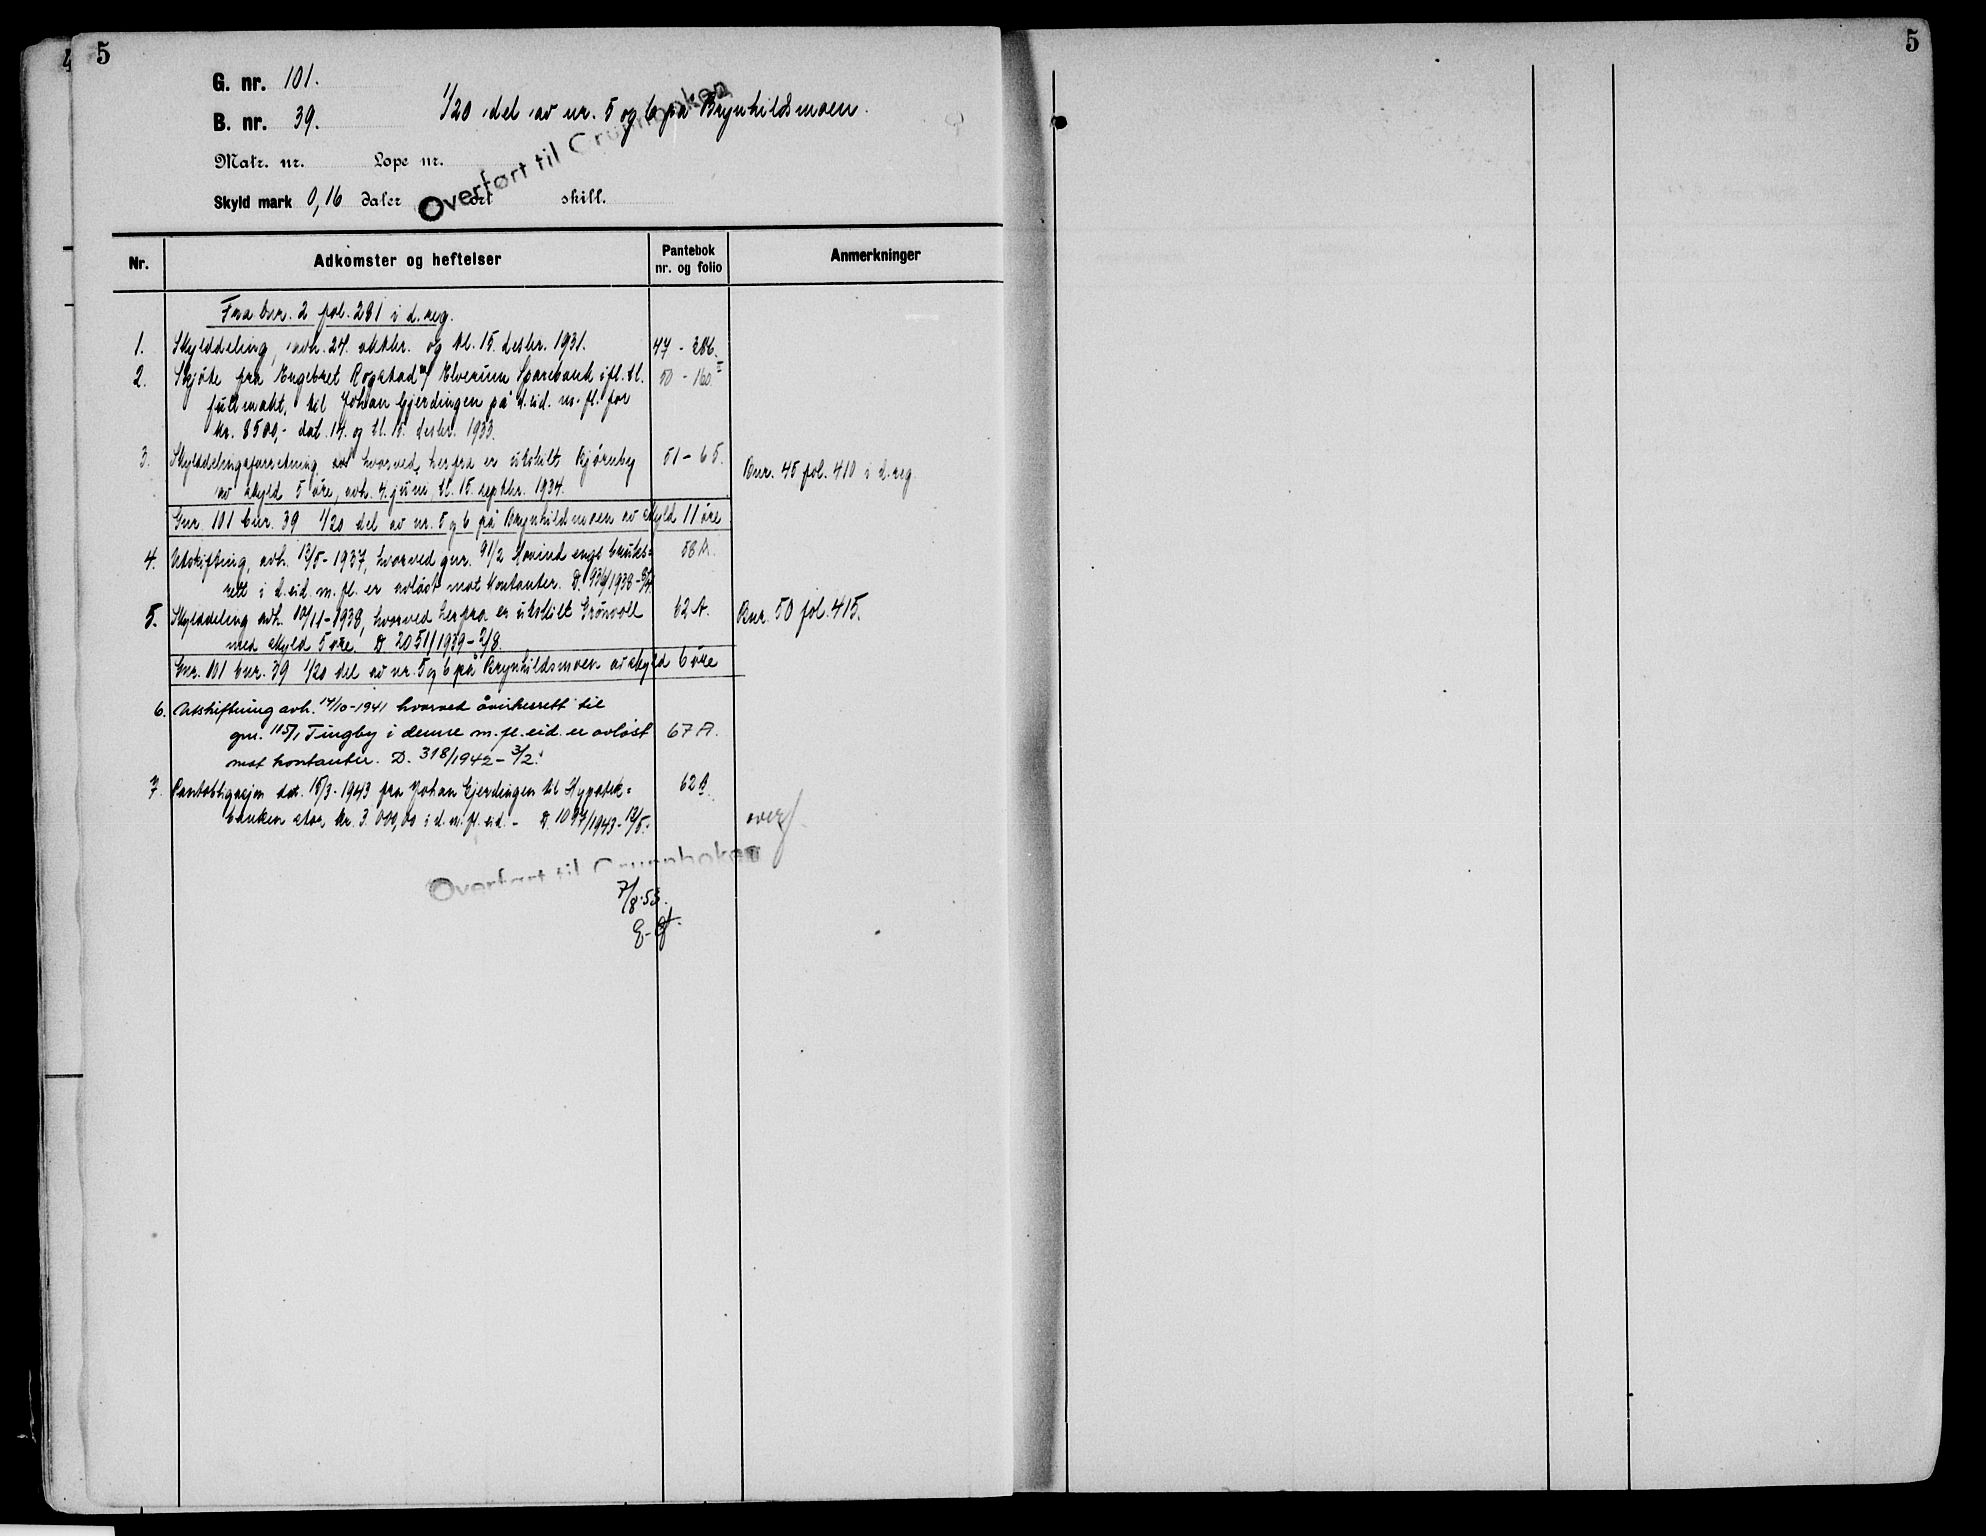 5
5
G. nr. 101.
B. nr. 39.
1/20 del av nr. 5 og 6 på Brynhildsmoen.
Matr. nr. Løpe nr.
Skyld mark 0,16 daler ort skill.
Overført til Grunnboken
Nr. Adkomster og heftelser Pantebok nr. og folio Anmerkninger
Fra bnr. 2 fol. 281 i d. reg.
1. Skylddeling, avh. 24. oktbr. og tl. 15. desbr. 1931. 47 - 386.
2. Skjøte fra Engebret Rogstad m/ Elverum Sparebank ifl. tl. 50 - 160 II
fullmakt, til Johan Gjerdingen på d. eid. m. fl. for
kr. 8500,- dat. 14. og tl. 15. desbr. 1933.
3. Skylddelingsforretning hvorved herfra er utskilt Bjørneby 51 - 65. Bnr. 45 fol. 410 i d. reg.
av skyld 5 øre, avh. 4. juni, tl. 15. septbr. 1934.
Gnr. 101 bnr. 39 1/20 del av nr. 5 og 6 på Brynhildsmoen av skyld 11 øre
4. Utskiftning, avh. 13/5 - 1937, hvorved gnr. 91/2 Hovind engs bruks= 58 A.
rett i d. eid. m. fl. er avløst mot kontanter. D. 936/1938
5. Skylddeling avh. 10/11 - 1938, hvorved herfra er utskilt Grønvoll 62 A. Bnr. 50 fol. 415.
med skyld 5 øre. D 2051/1939 - 2/8.
Gnr. 101 bnr. 39 1/20 del av nr. 5 og 6 på Brynhildsmoen av skyld 6 øre
6. Utskiftning avh. 14/10 - 1941 hvorved åvirkesrett til
gnr. 115/1 Tingby i denne m. fl. eid. er avløst 67 A.
mot kontanter. D. 318/1942 - 3/2.
7. Pantobligasjon dat. 15/3 - 1943 fra Johan Gjerdingen til Hypotek= 62 B.
banken stor kr. 3.000,00 i d. m. fl. eid. - D. 1097/1943 - 12/5. overf.
Overført til Grunnboken
7/8.53.